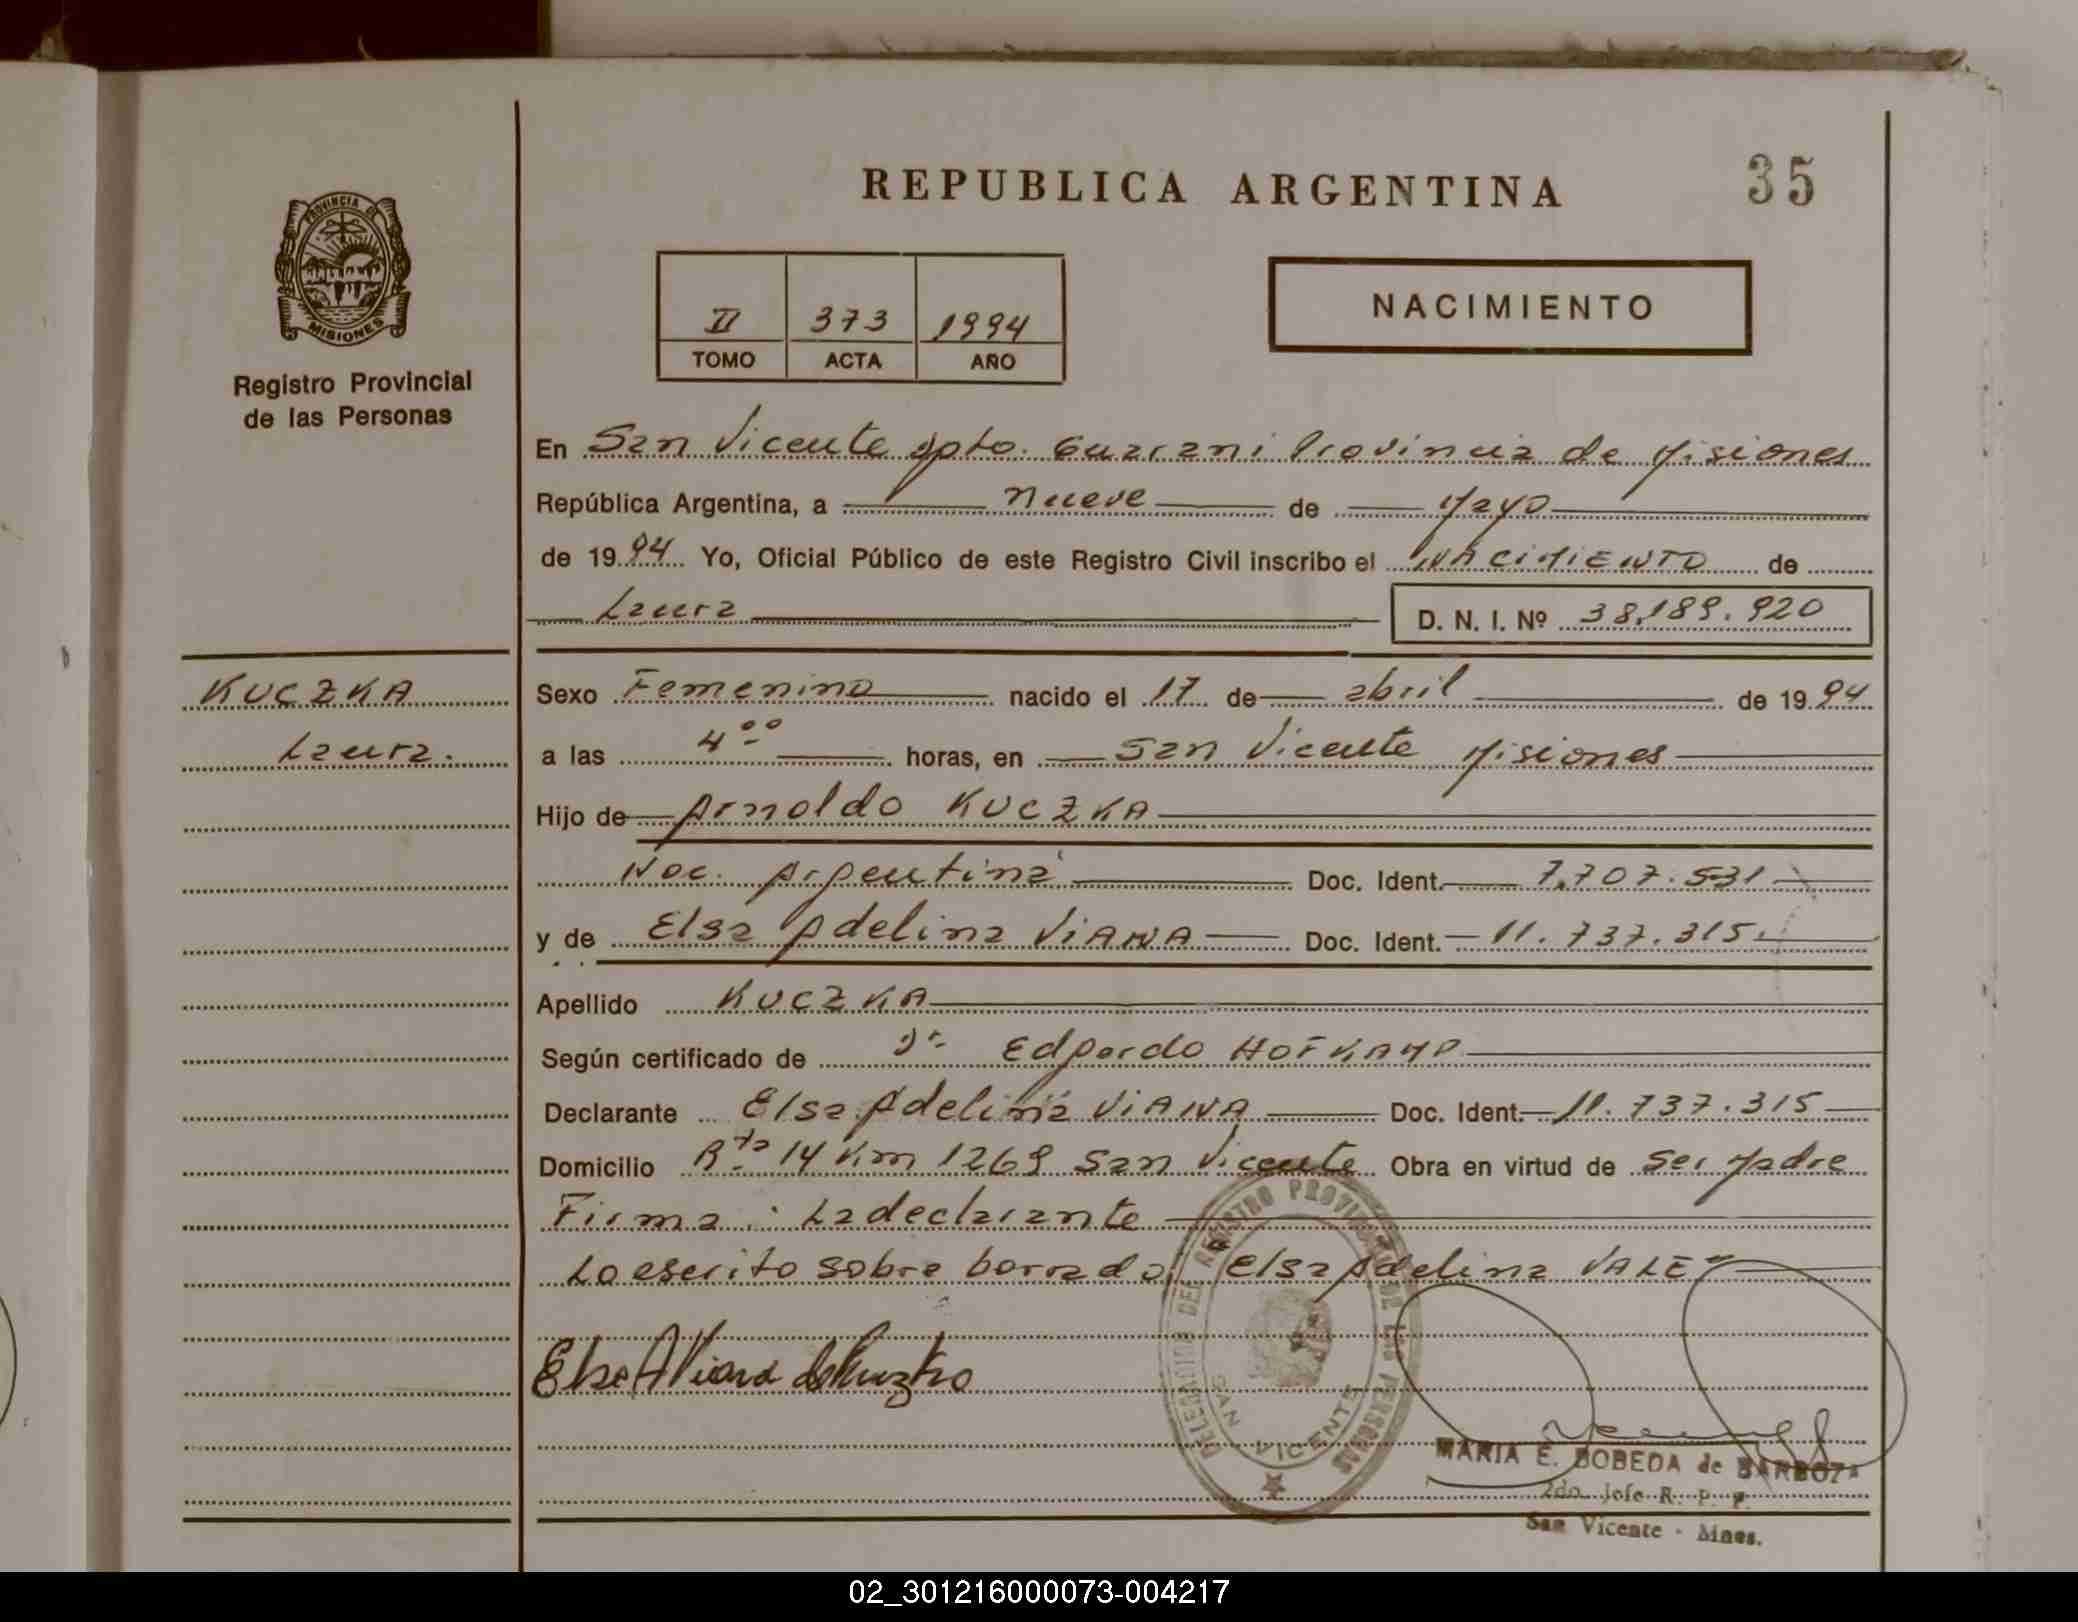 REPUBLICA ARGENTINA
35
PROVINCIA DE
MISIONES
Registro Provincial
de las Personas
II 373 1994
TOMO ACTA AÑO
NACIMIENTO
En San Vicente Dpto. Guarani Provincia de Misiones
República Argentina, a nueve de Mayo
de 1994 Yo, Oficial Público de este Registro Civil inscribo el NACIMIENTO de
Laura D. N. I. Nº 38.189.920
KUCZKA
Laura.
Sexo Femenino nacido el 17 de abril de 1994
a las 4°° horas, en San Vicente Misiones
Hijo de Arnoldo KUCZKA
Nac. Argentina Doc. Ident. 7.707.531
y de Elsa Adelina VIANA Doc. Ident. 11.737.315.
Apellido KUCZKA
Según certificado de Dr. Edgardo HOFKAMP
Declarante Elsa Adelina VIANA Doc. Ident. 11.737.315
Domicilio Rta 14 Km 1269 San Vicente Obra en virtud de ser Madre
Firma: La declarante
Lo escrito sobre borrado, Elsa Adelina VALE
Elsa A Viana de Kuczka
DELEGACION DEL REGISTRO PROVINCIAL DE LAS PERSONAS
SAN VICENTE
MARIA E. BOBEDA de BARBOZA
2do. Jefe R. P. P.
San Vicente - Mnes.
02_301216000073-004217